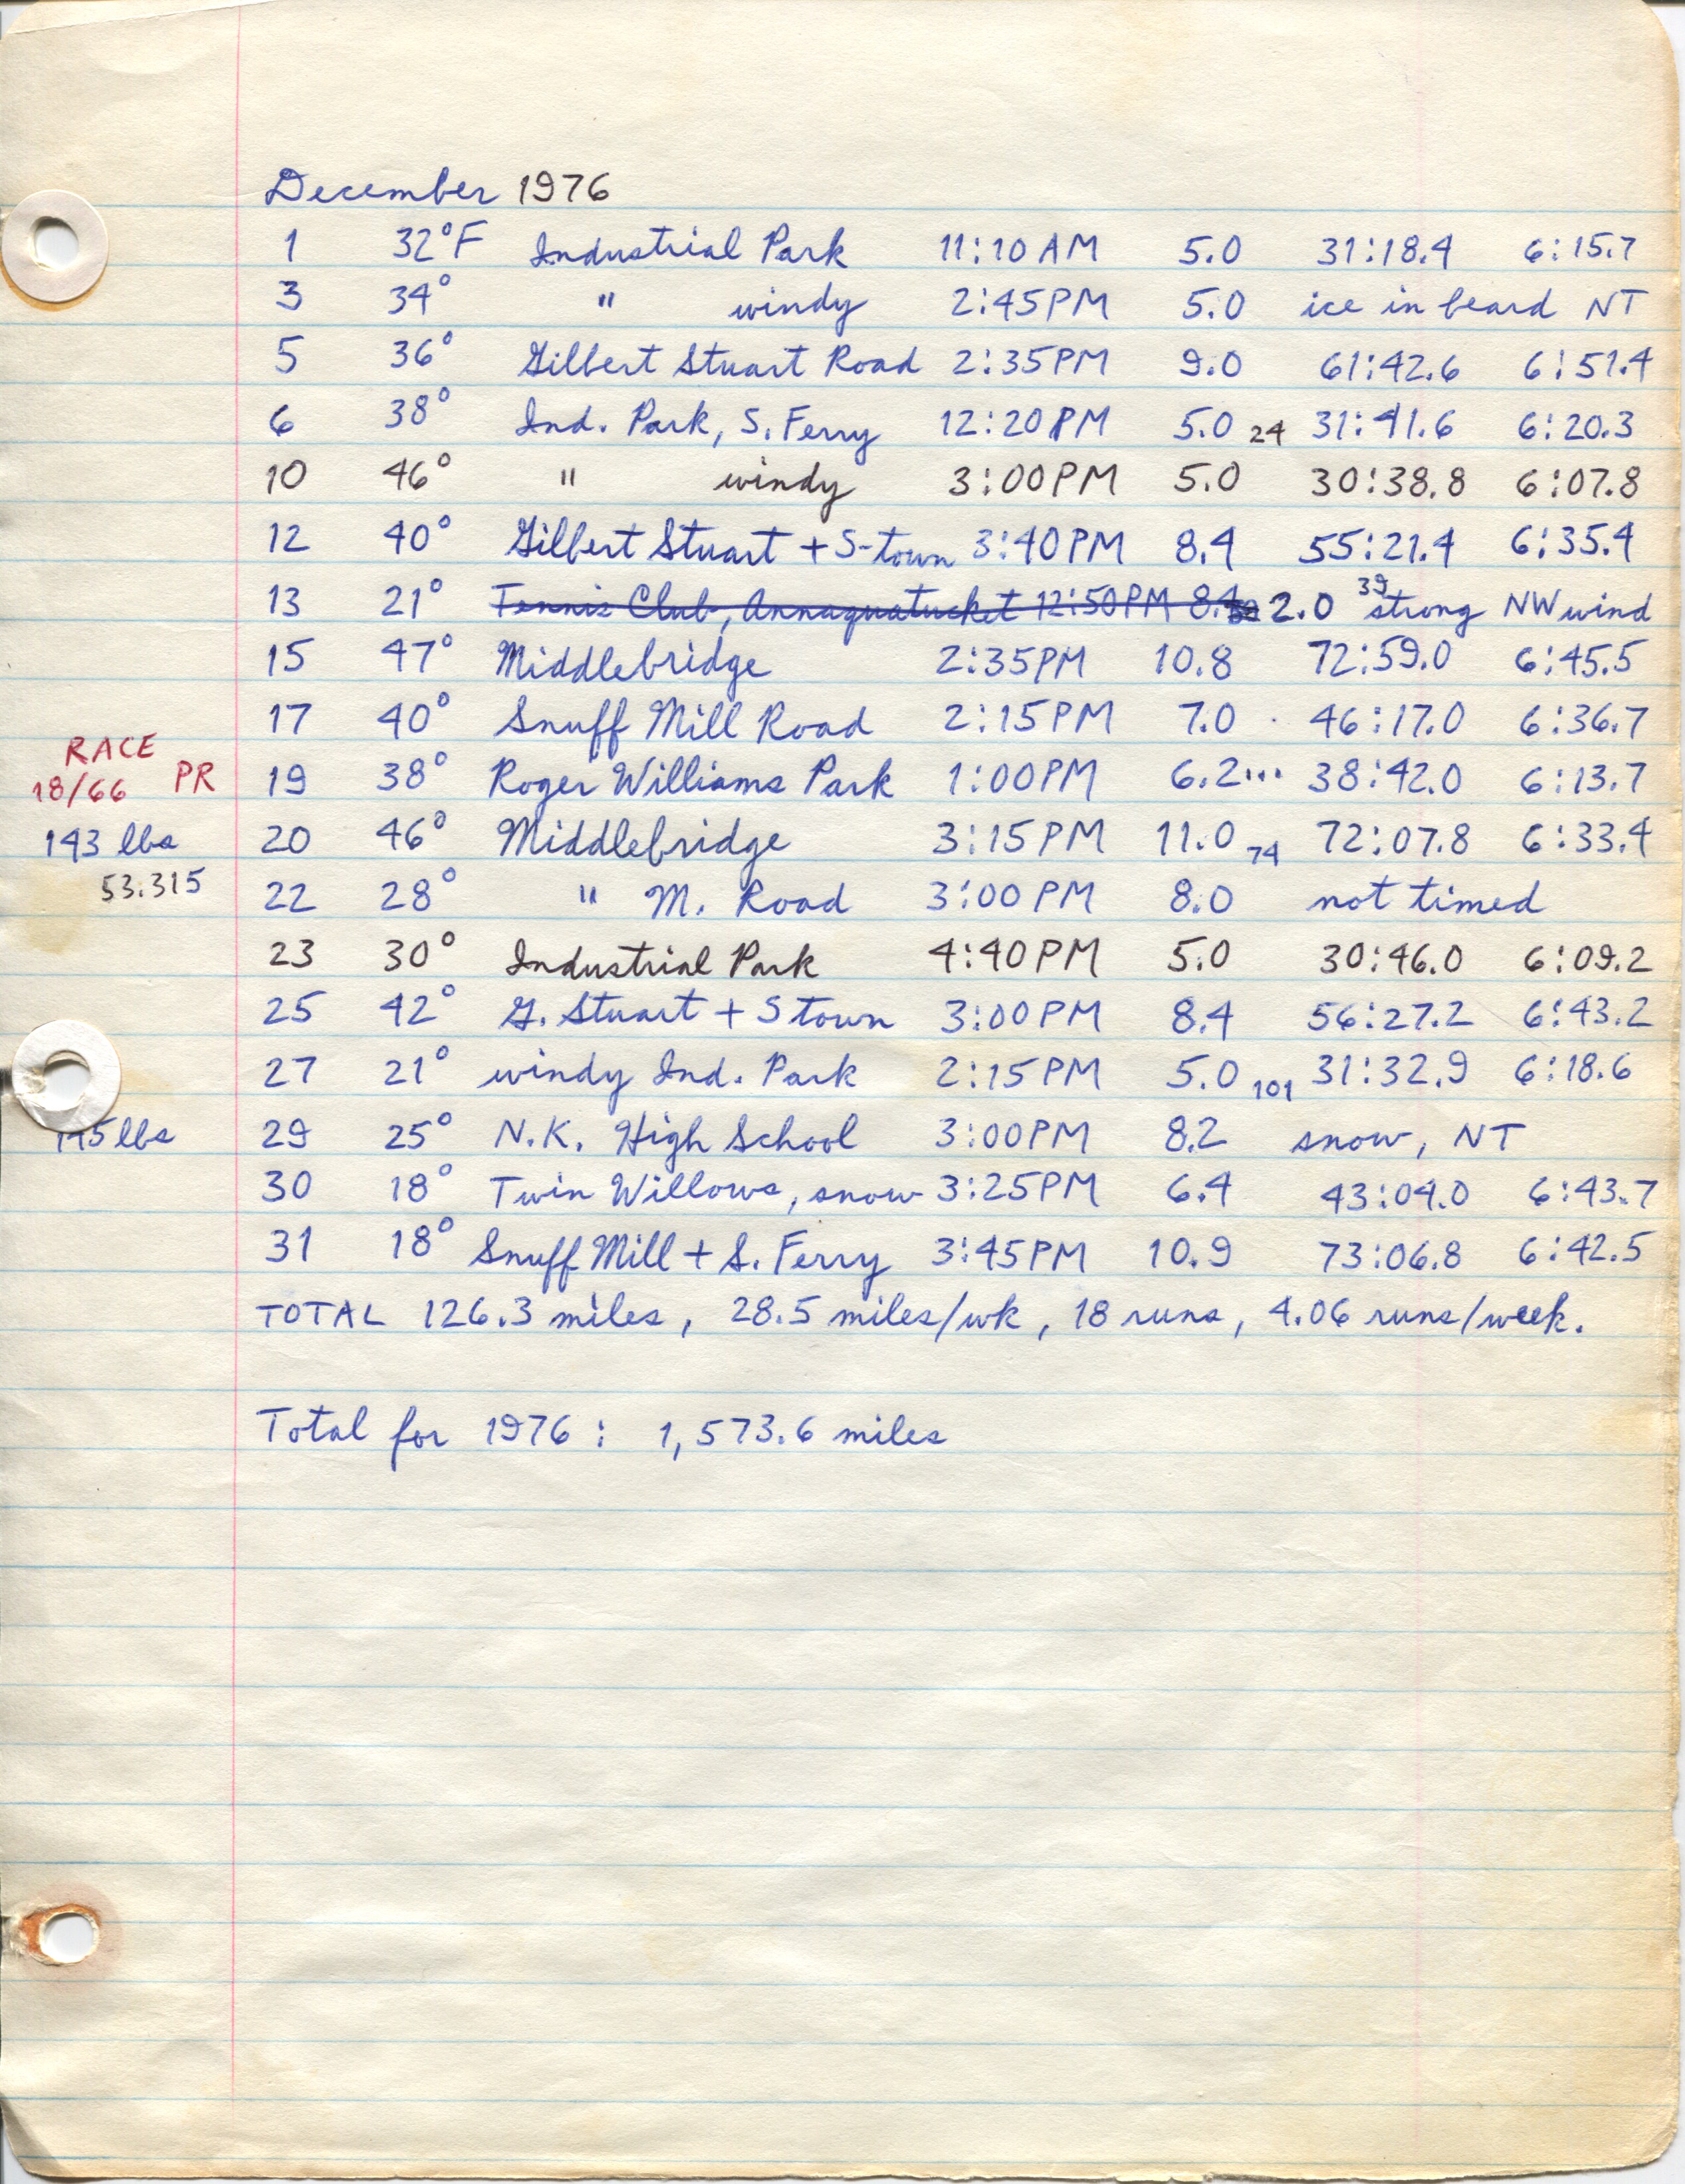 December 1976
1 32°F Industrial Park 11:10 AM 5.0 31:18.4 6:15.7
3 34° " windy 2:45PM 5.0 ice in beard NT
5 36° Gilbert Stuart Road 2:35PM 9.0 61:42.6 6:51.4
6 38° Ind. Park, S. Ferry 12:20PM 5.0 24 31:41.6 6:20.3
10 46° " windy 3:00PM 5.0 30:38.8 6:07.8
12 40° Gilbert Stuart + S-town 3:40PM 8.4 55:21.4 6:35.4
13 21° Tennis Club, Annaquatucket 12:50PM 8.4 2.0 39 strong NW wind
15 47° Middlebridge 2:35PM 10.8 72:59.0 6:45.5
17 40° Snuff Mill Road 2:15PM 7.0 46:17.0 6:36.7
RACE
18/66 PR 19 38° Roger Williams Park 1:00PM 6.2... 38:42.0 6:13.7
143 lbs 20 46° Middlebridge 3:15PM 11.0 74 72:07.8 6:33.4
53:315 22 28° " M. Road 3:00PM 8.0 not timed
23 30° Industrial Park 4:40PM 5.0 30:46.0 6:09.2
25 42° G. Stuart + S town 3:00PM 8.4 56:27.2 6:43.2
27 21° windy Ind. Park 2:15PM 5.0 101 31:32.9 6:18.6
145 lbs 29 25° N.K. High School 3:00PM 8.2 snow, NT
30 18° Twin Willows, snow 3:25PM 6.4 43:04.0 6:43.7
31 18° Snuff Mill + S. Ferry 3:45PM 10.9 73:06.8 6:42.5
TOTAL 126.3 miles, 28.5 miles/wk, 18 runs, 4.06 runs/week.
Total for 1976: 1,573.6 miles